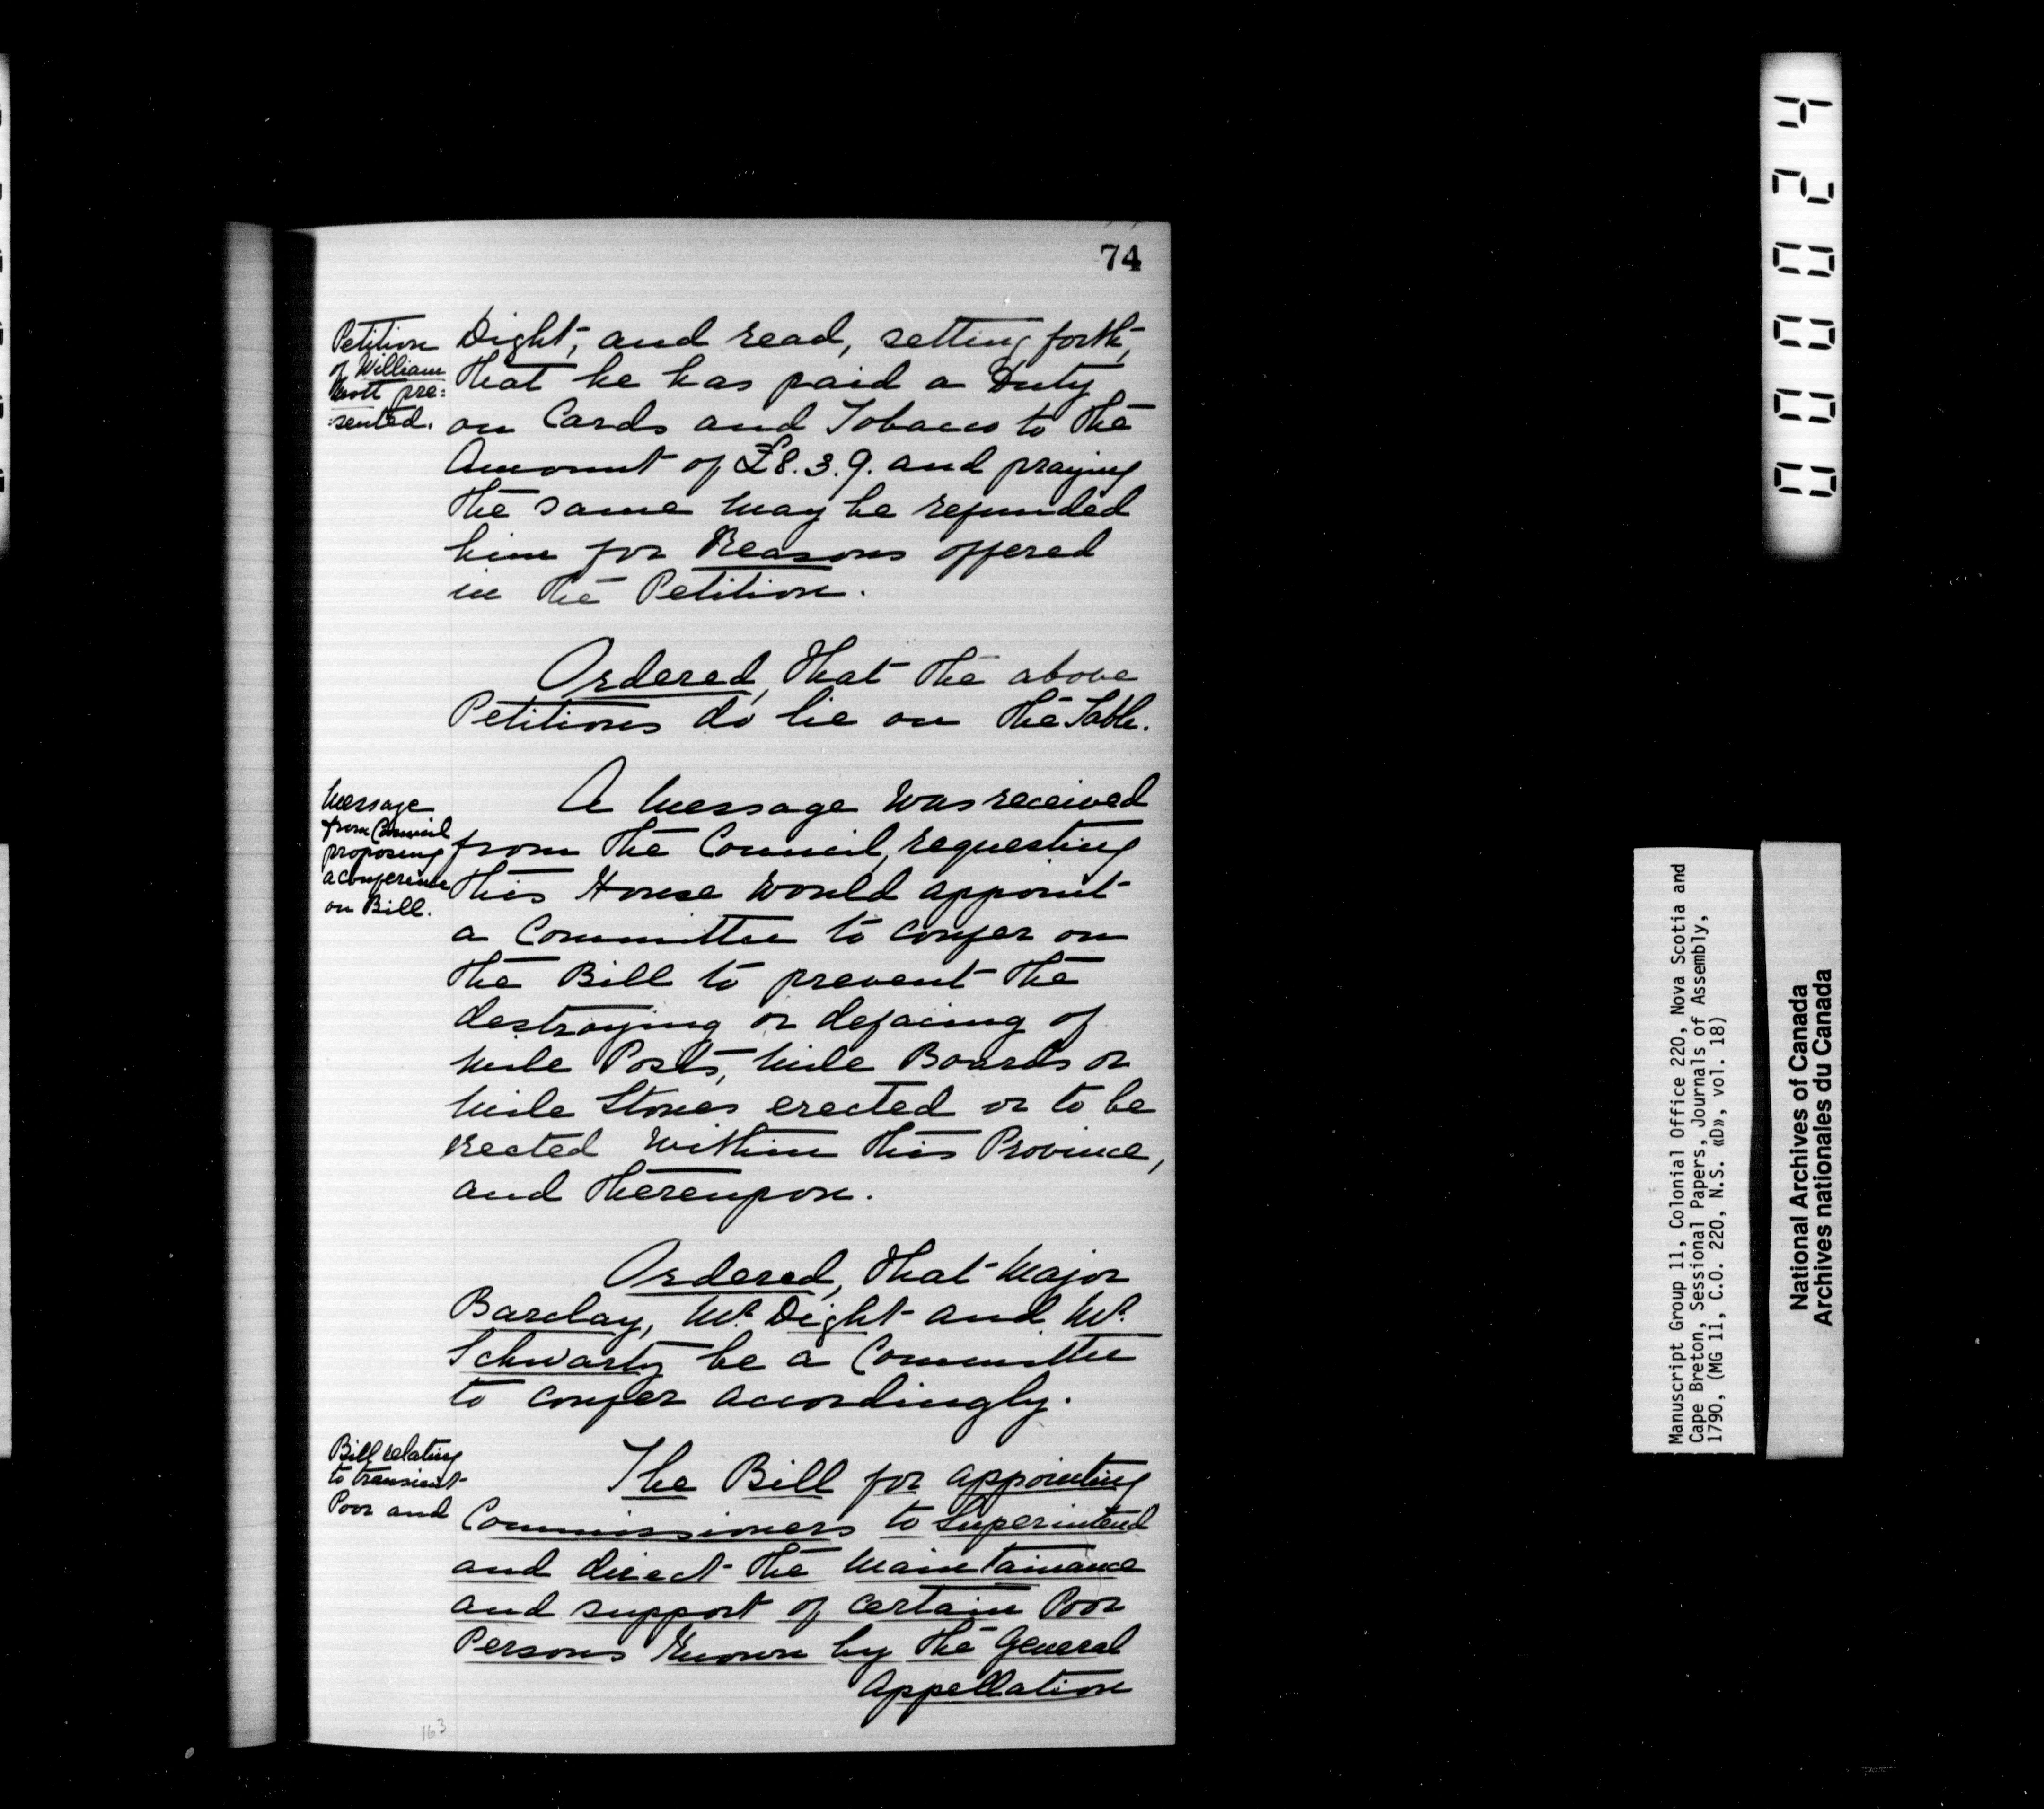 74
Petition
of William
Mott pre=
:sented.
Dight, and read, setting forth,
that he has paid a Duty
on Cards and Tobacco to the
Amount of £8.3.9. and praying
the same may be refunded
him for Reasons offered
in the Petition.
Ordered, that the above
Petitions do lie on the Table.
Message
from Council
proposing
a conference
on Bill.
A Message was received
from the Council, requesting
this House would appoint
a Committee to confer on
the Bill to prevent the
destroying or defacing of
Mile Posts, Mile Boards or
Mile Stones erected or to be
erected within this Province,
and thereupon.
Ordered, that Major
Barclay, Mr. Dight and Mr.
Schwartz be a Committee
to confer accordingly.
Bill relating
to transient
Poor and
The Bill for appointing
Commissioners to Superintend
and direct the Maintainance
and support of certain Poor
Persons known by the General
Appellation
163
000024
Manuscript Group 11, Colonial Office 220, Nova Scotia and
Cape Breton, Sessional Papers, Journals of Assembly,
1790, (MG 11, C.O. 220, N.S. «D», vol. 18)
National Archives of Canada
Archives nationales du Canada